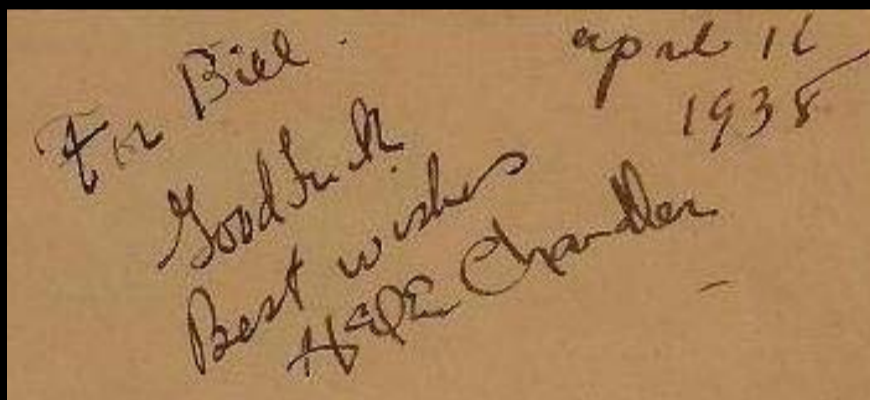 For Bill.
april 16
1938
Good Luck
Best wishes
Chandler